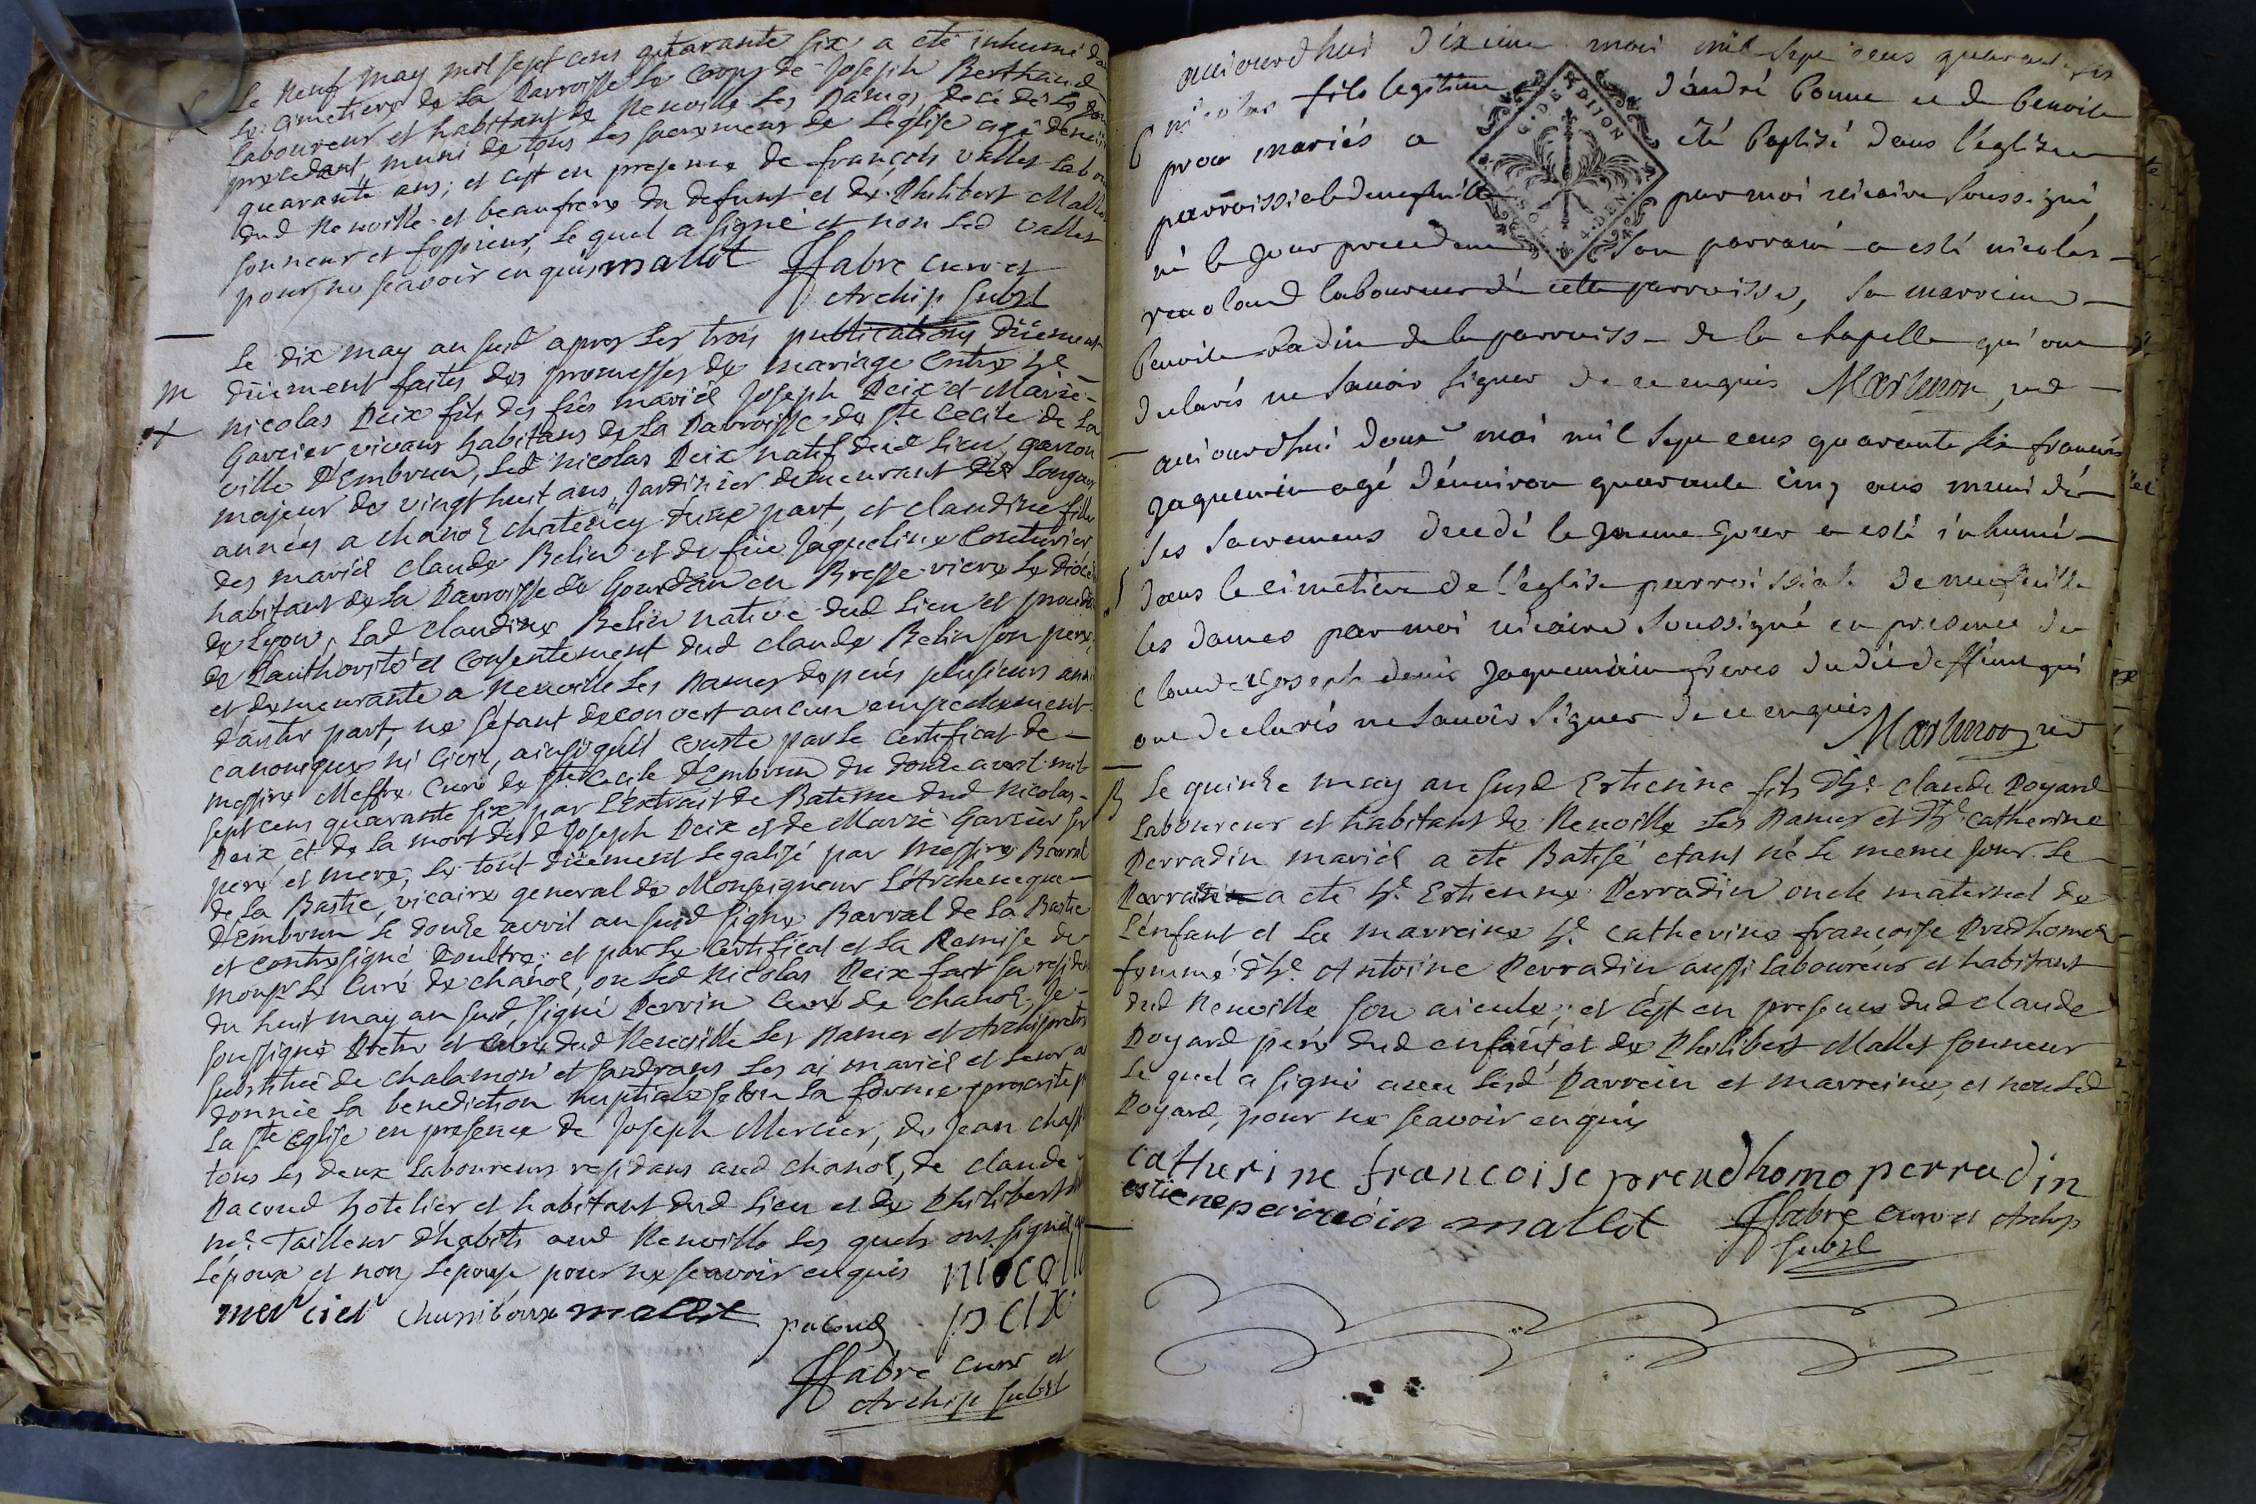 Le neuf may mil sept cens quarante six a eté inhumé da
Le cimetiere de La Parroisse Le Corps de Joseph Berthaud
Laboureur et habitant de Neuville Les Dames, decedé Le jour
precedant, muni de tous Les sacremens de L'eglise agé d'env
quarante ans; et c'est en presence de françois vallet Labou
dud Neuville et beaufrere du defunt et de Philibert Mallet
sonneur et fossieur, Le quel a signé et non Led vallet
pour ne sçavoir enquis mallot ffabre curé et
Archip subst
m
+
Le dix may an susd apres Les trois publications düement
düement faites des promesses de mariage Entre hle
nicolas Peix fils des fûs mariés Joseph Peix et Marie
Garcier vivans habitans de La Parroisse de Ste Cecile de La
ville d'Embrun, Led nicolas Peix natif dud Lieu, garçon
majeur de vingt huit ans, Jardinier demeurant des Longues
années a chanoz chatenay d'une part, et claudine fille
des mariés claude Belin et de fûe Jaqueline Couturier
habitant de La Parroisse de Gourdan en Bresse diocese
de Lyon, Lad claudine Belin native dud Lieu et
de L'authorité et consentement dud claude Belin son pere,
et demeurante a Neuville Les Dames depuis plusieurs anné
d'autre part, ne s'étant decouvert aucun empechement
canonique ni civil, ainsi qu'il conste par Le certificat de
messire Meffre Curé de Ste Cecile d'Embrun du douze avril mil
sept cens quarante six par L'Extrait de Bateme dud Nicolas
Peix et de La mort dud Joseph Peix et de Marie Garcier ses
pere et mere, Le tout düement Legalisé par Messire Barral
de La Bastie, vicaire general de Monseigneur L'Archeveque
d'Embrun Le douze avril an susd signé Barral de La Bastie
et contresigné Doultre; et par Le Certificat et La Remise de
monsr Le Curé de chanoz, ou Led Nicolas Peix fait sa residen
du huit may an susd signé Perrin Curé de chanoz. Je
soussigné Pretre et Curé dud Neuville Les Dames et Archipretre
substitué de chalamont et sandrans Les ai mariés et Leur ai
donnée La benediction nuptiale selon La forme prescrite p
La Ste Eglise en presence de Joseph Mercier, de Jean chass
tous Les deux Laboureurs residans aud chanoz, de claude
Pacoud hotelier et habitant dud Lieu et de Philibert
me Tailleur d'habits aud Neuville Les quels ont signés
L'epoux et non L'epouse pour ne sçavoir enquis niocolla
mercier mallot pacoud peix
ffabre curé et
Archip subst
aujourdhui dixieme mai mil sept cens quarante six
B nicolas fils legitime d'andré bonne et de benoite
proa mariés a été baptisé dans l'eglise
parroissiale de neufville par moi vicaire soussigné
né le jour precedent son parrain a esté nicolas
renoland laboureur dé cette parroisse, sa marreine
benoite badin de la parroisse de la chapelle qui ont
declarés ne savoir signer de ce enquis Martinon, vic
aujourdhui douze mai mil sept cens quarante six francois
Jaquemin agé d'environ quarante cinq ans muni dé
ses sacremens decedé le jour a esté inhumé
S dans le cimetiere de l'eglise parroissiale de neufville
les dames par moi vicaire soussigné en presence de
claude et joseph denis Jaquemain freres dudit deffunt qui
ont declarés ne savoir signer de ce enquis
Martinon, vic
B Le quinze may an susd Estienne fils d'hle claude Poyard
Laboureur et habitant de Neuville Les Dames et d'hle Catherine
Perradin mariés a eté Batisé etant né Le meme jour. Le
Parrain a eté hle Estienne Perradin oncle maternel de
L'enfant et La marreine hle catherine françoise Prudhomme
femme d'hle Antoine Perradin aussi Laboureur et habitant
dud Neuville son aieule; et c'est en presence dud claude
Poyard pere dud enfant et de Philibert Mallet sonneur
Le quel a signé avec Lesd Parrein et marreine, et non Led
Poyard, pour ne sçavoir enquis
catherine francoise preudhomo perradin
estiene perradin mallot ffabre curé et Archip
subst